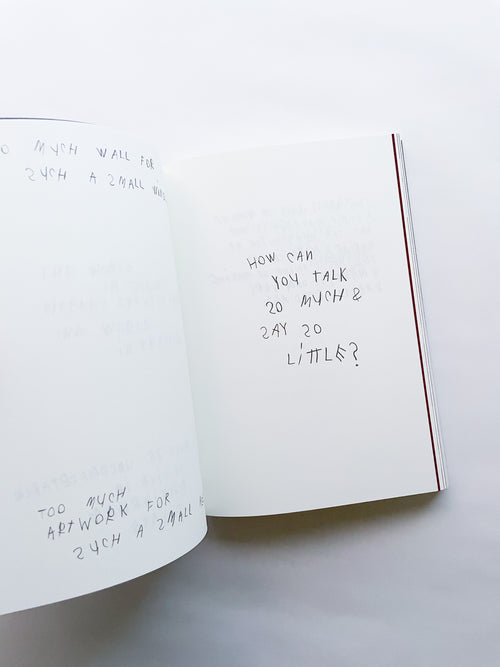 MUCH WALL FOR
SUCH A SMALL
TOO MUCH
ARTWORK FOR
SUCH A SMALL
HOW CAN
YOU TALK
SO MUCH &
SAY SO
LITTLE?